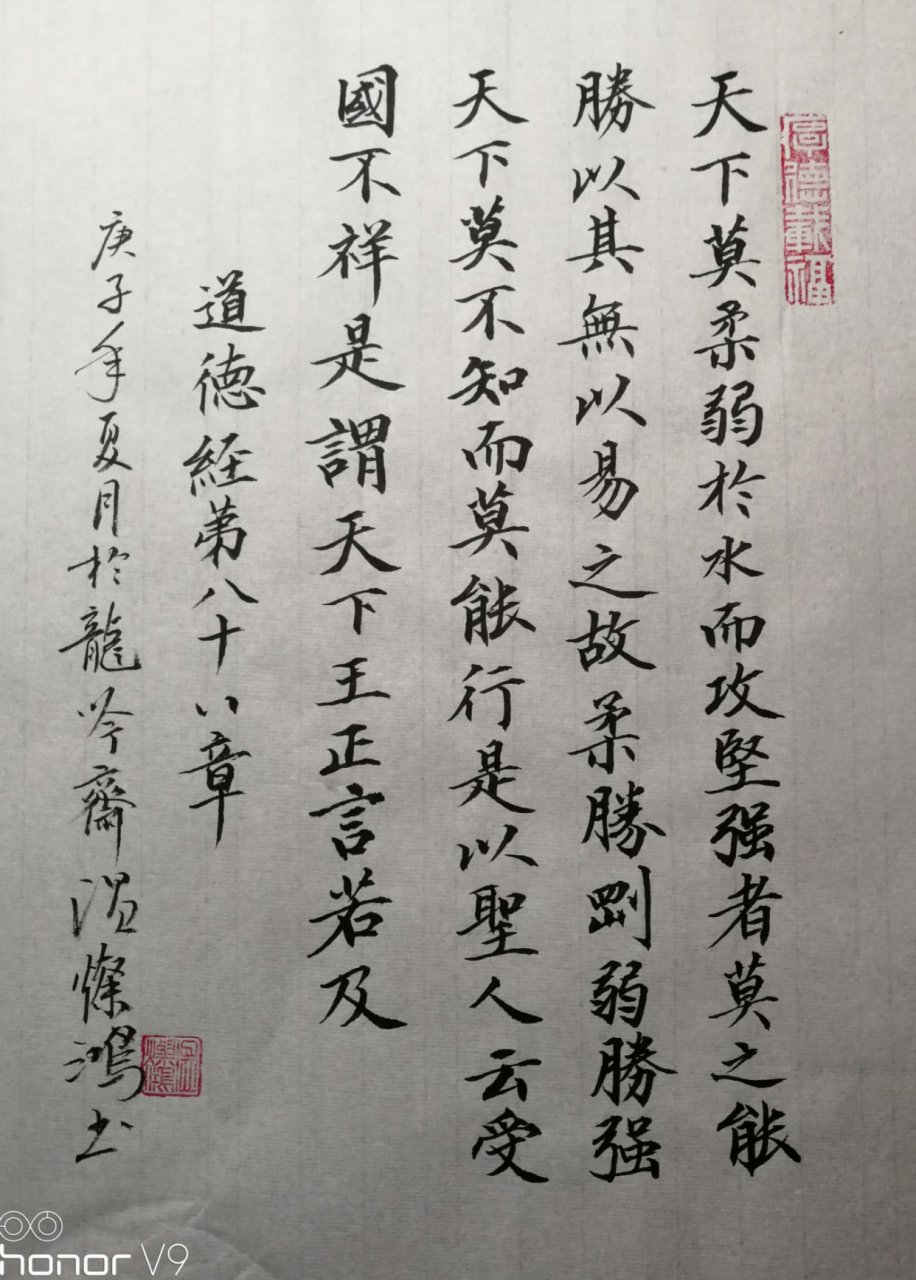 厚德載福
天下莫柔弱於水而攻堅强者莫之能
勝以其無以易之故柔勝剛弱勝强
天下莫不知而莫能行是以聖人云受
國不祥是謂天下王正言若及
道德経第八十八章
庚子年夏月於龍吟齋温燦鴻书
温燦鴻
honor V9